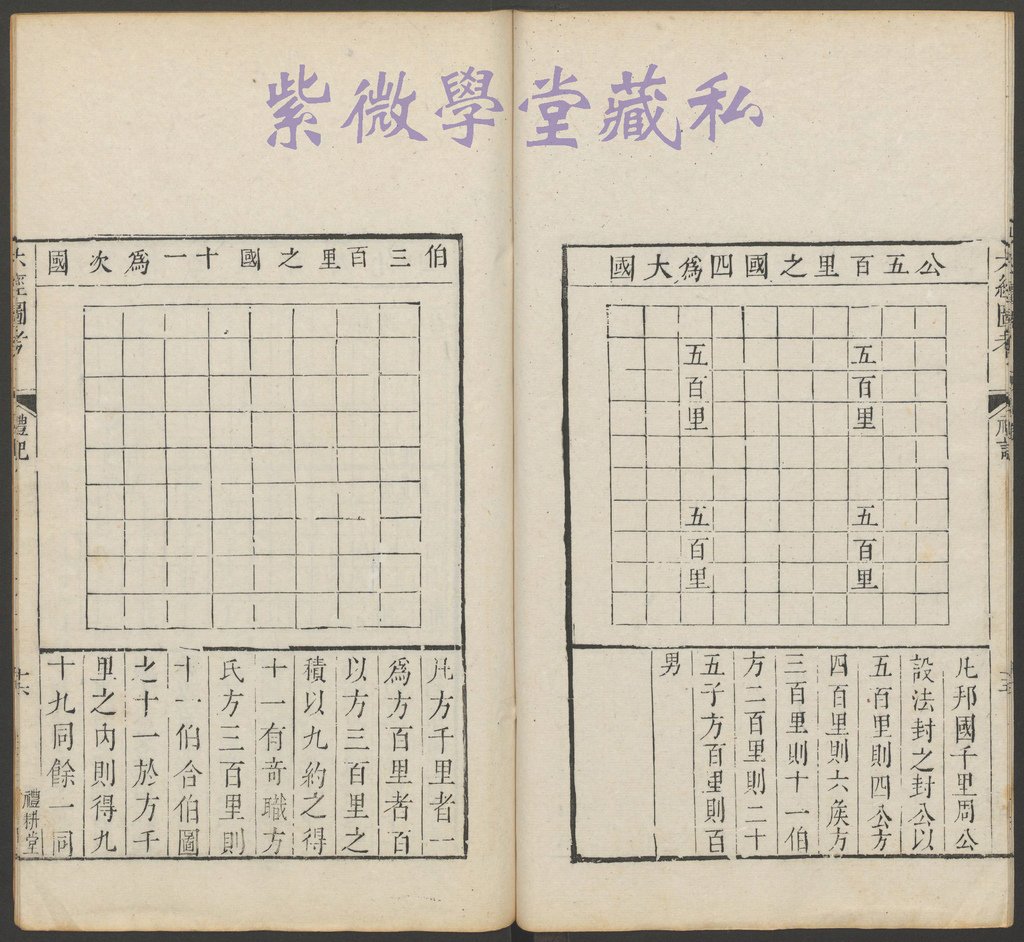 紫微學堂藏私
公五百里之國四爲大國
五百里
五百里
五百里
五百里
凡邦國千里周公
設法封之封公以
五百里則四公方
四百里則六侯方
三百里則十一伯
方二百里則二十
五子方百里則百
男
六經圖考
禮記
伯三百里之國十一爲次國
凡方千里者一
爲方百里者百
以方三百里之
積以九約之得
十一有奇職方
氏方三百里則
十一伯合伯圖
之十一於方千
里之內則得九
十九同餘一同
六經圖考
禮記
禮耕堂